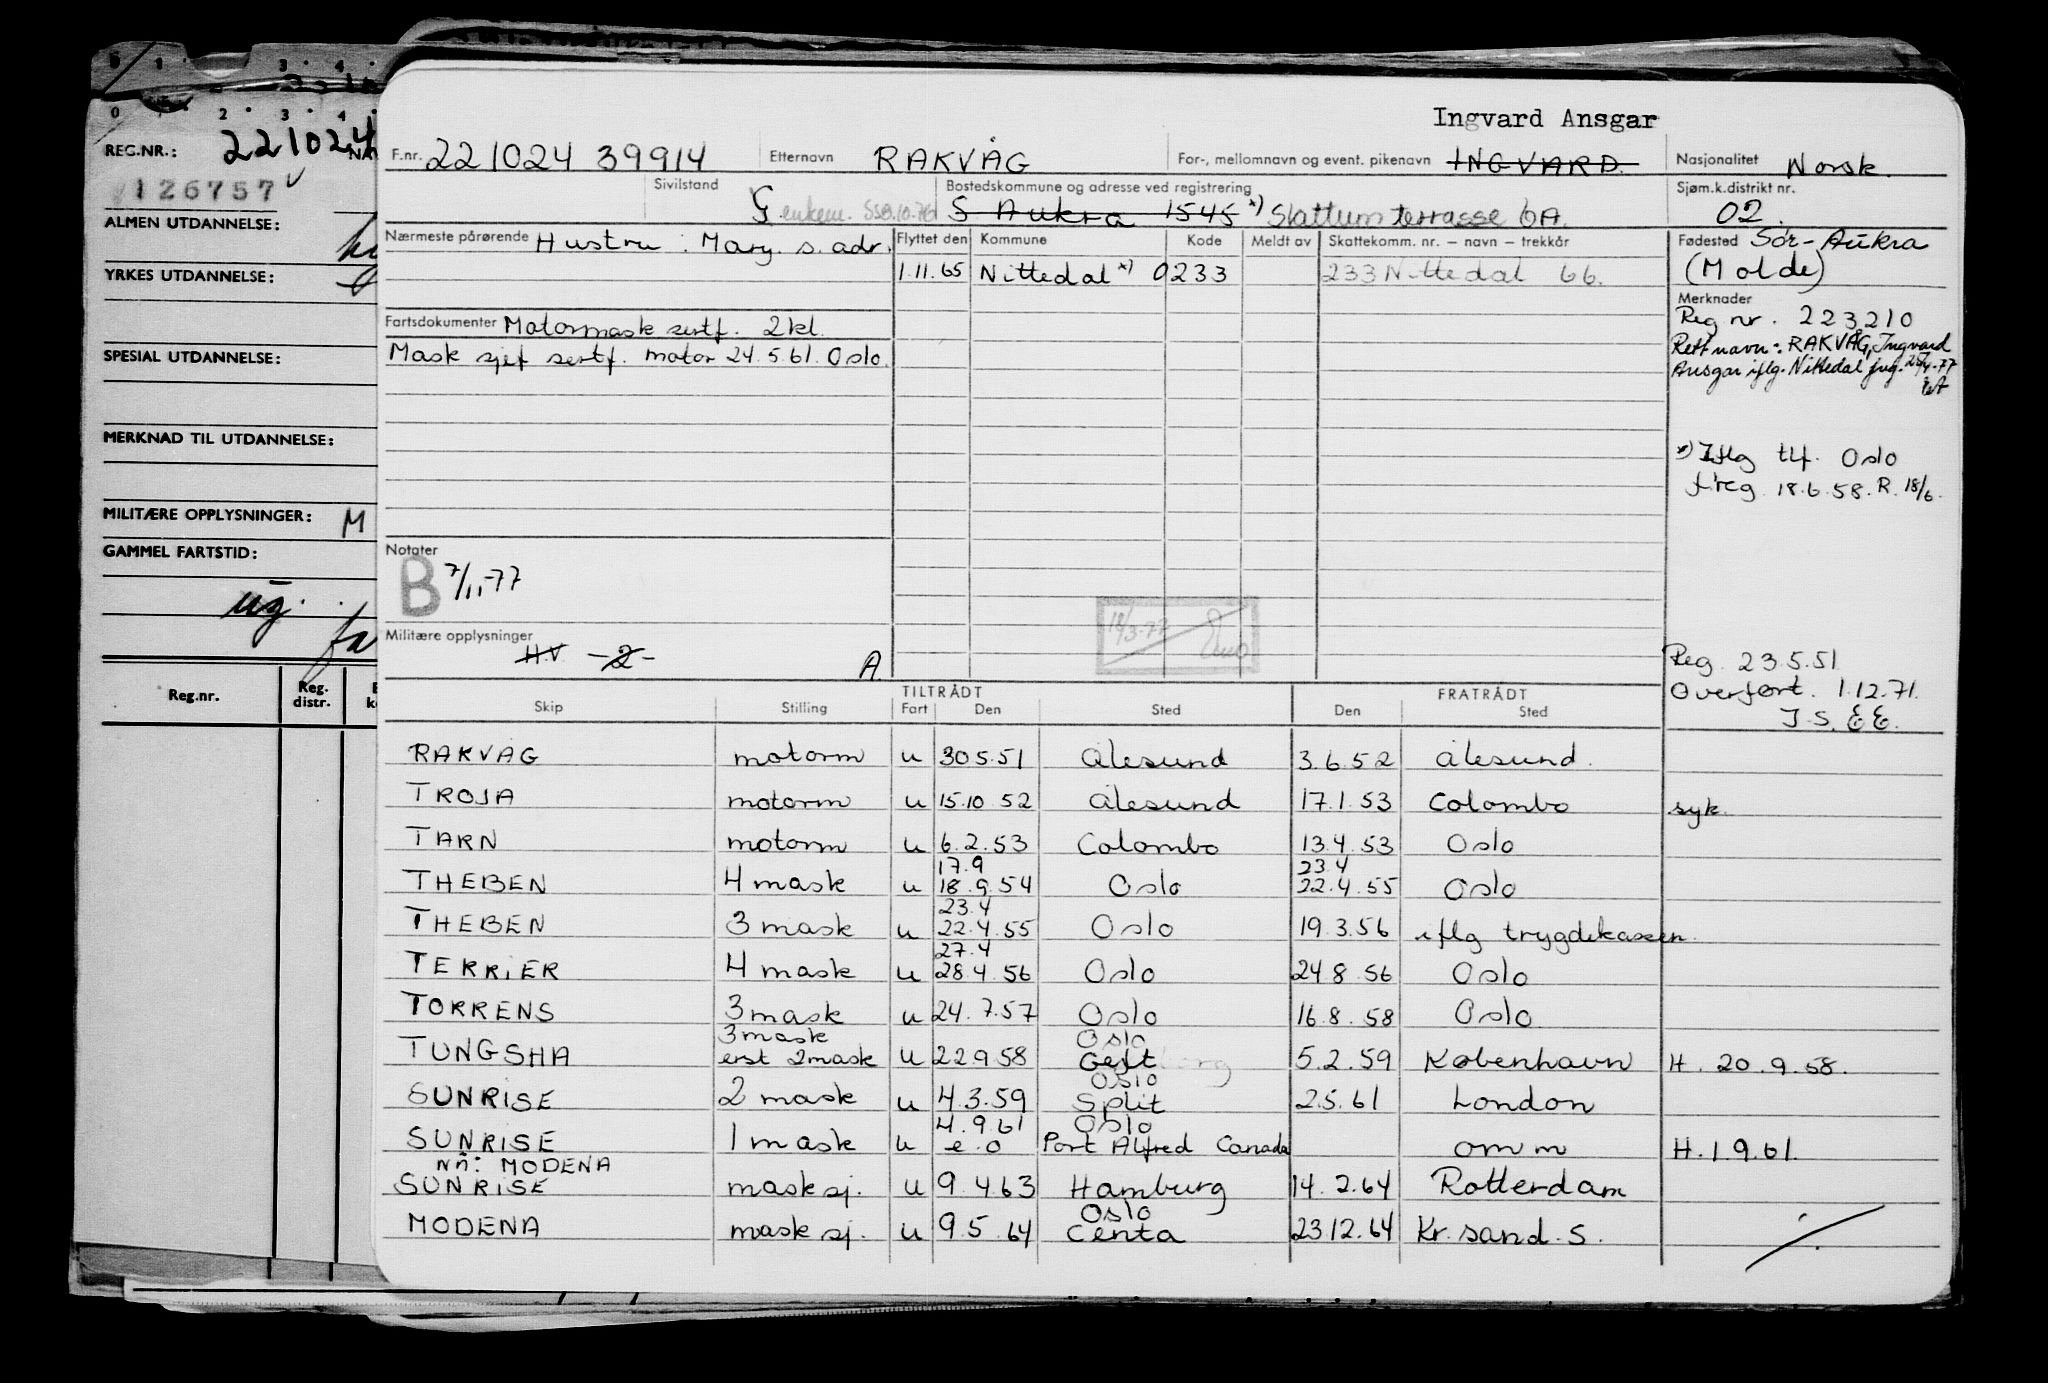 REG.NR.: 221024
126757
ALMEN UTDANNELSE:
YRKES UTDANNELSE:
SPESIAL UTDANNELSE:
MERKNAD TIL UTDANNELSE:
MILITÆRE OPPLYSNINGER: M
GAMMEL FARTSTID:
ug.
Reg.nr. Reg. distr.
Ingvard Ansgar
F.nr. 221024 39914 Etternavn RAKVÅG For-, mellomnavn og event. pikenavn INGVARD. Nasjonalitet Norsk.
Sivilstand G enkem. Bostedskommune og adresse ved registrering S Aukra 1545 *) Slattum terrasse 6A. Sjøm.k.distrikt nr. 02.
Nærmeste pårørende Hustru: Mary. s. adr. Flyttet den Kommune Kode Meldt av Skattekomm. nr. – navn – trekkår Fødested Sør-Aukra
1.11.65 Nittedal *) 0233 233 Nittedal 66. (Molde)
Merknader
Fartsdokumenter Motormask sertf. 2kl. Reg nr. 223210
Mask sjef sertf. motor 24.5.61. Oslo. Rett navn: RAKVÅG, Ingvard
Ansgar iflg. Nittedal
*) Iflg tlf. Oslo
f'reg 18.6.58. R. 18/6.
Notater
B 7/11-77
18/3-77
Militære opplysninger
H.V. -2- A
Reg. 23.5.51
Overført. 1.12.71.
J.S. EE.
TILTRÅDT FRATRÅDT
Skip Stilling Fart Den Sted Den Sted
RAKVÅG motorm u 30.5.51 Ålesund 3.6.52 Ålesund.
TROJA motorm u 15.10.52 Ålesund 17.1.53 Colombo syk.
TARN motorm u 6.2.53 Colombo 13.4.53 Oslo
17.9 23.4
THEBEN 4 mask u 18.9.54 Oslo 22.4.55 Oslo
23.4
THEBEN 3 mask u 22.4.55 Oslo 19.3.56 iflg trygdekassen.
27.4
TERRIER 4 mask u 28.4.56 Oslo 24.8.56 Oslo
TORRENS 3 mask u 24.7.57 Oslo 16.8.58 Oslo
3 mask Oslo
TUNGSHA erst 2mask u 22.9.58 5.2.59 København H. 20.9.58.
Oslo
SUNRISE 2 mask u 4.3.59 Split 2.5.61 London
4.9.61 Oslo
SUNRISE 1 mask u e.o Port Alfred Canada omm H. 1.9.61.
nå: MODENA
SUNRISE mask sj. u 9.4.63 Hamburg 14.2.64 Rotterdam
Oslo
MODENA mask sj. u 9.5.64 Centa 23.12.64 Kr.sand.S.